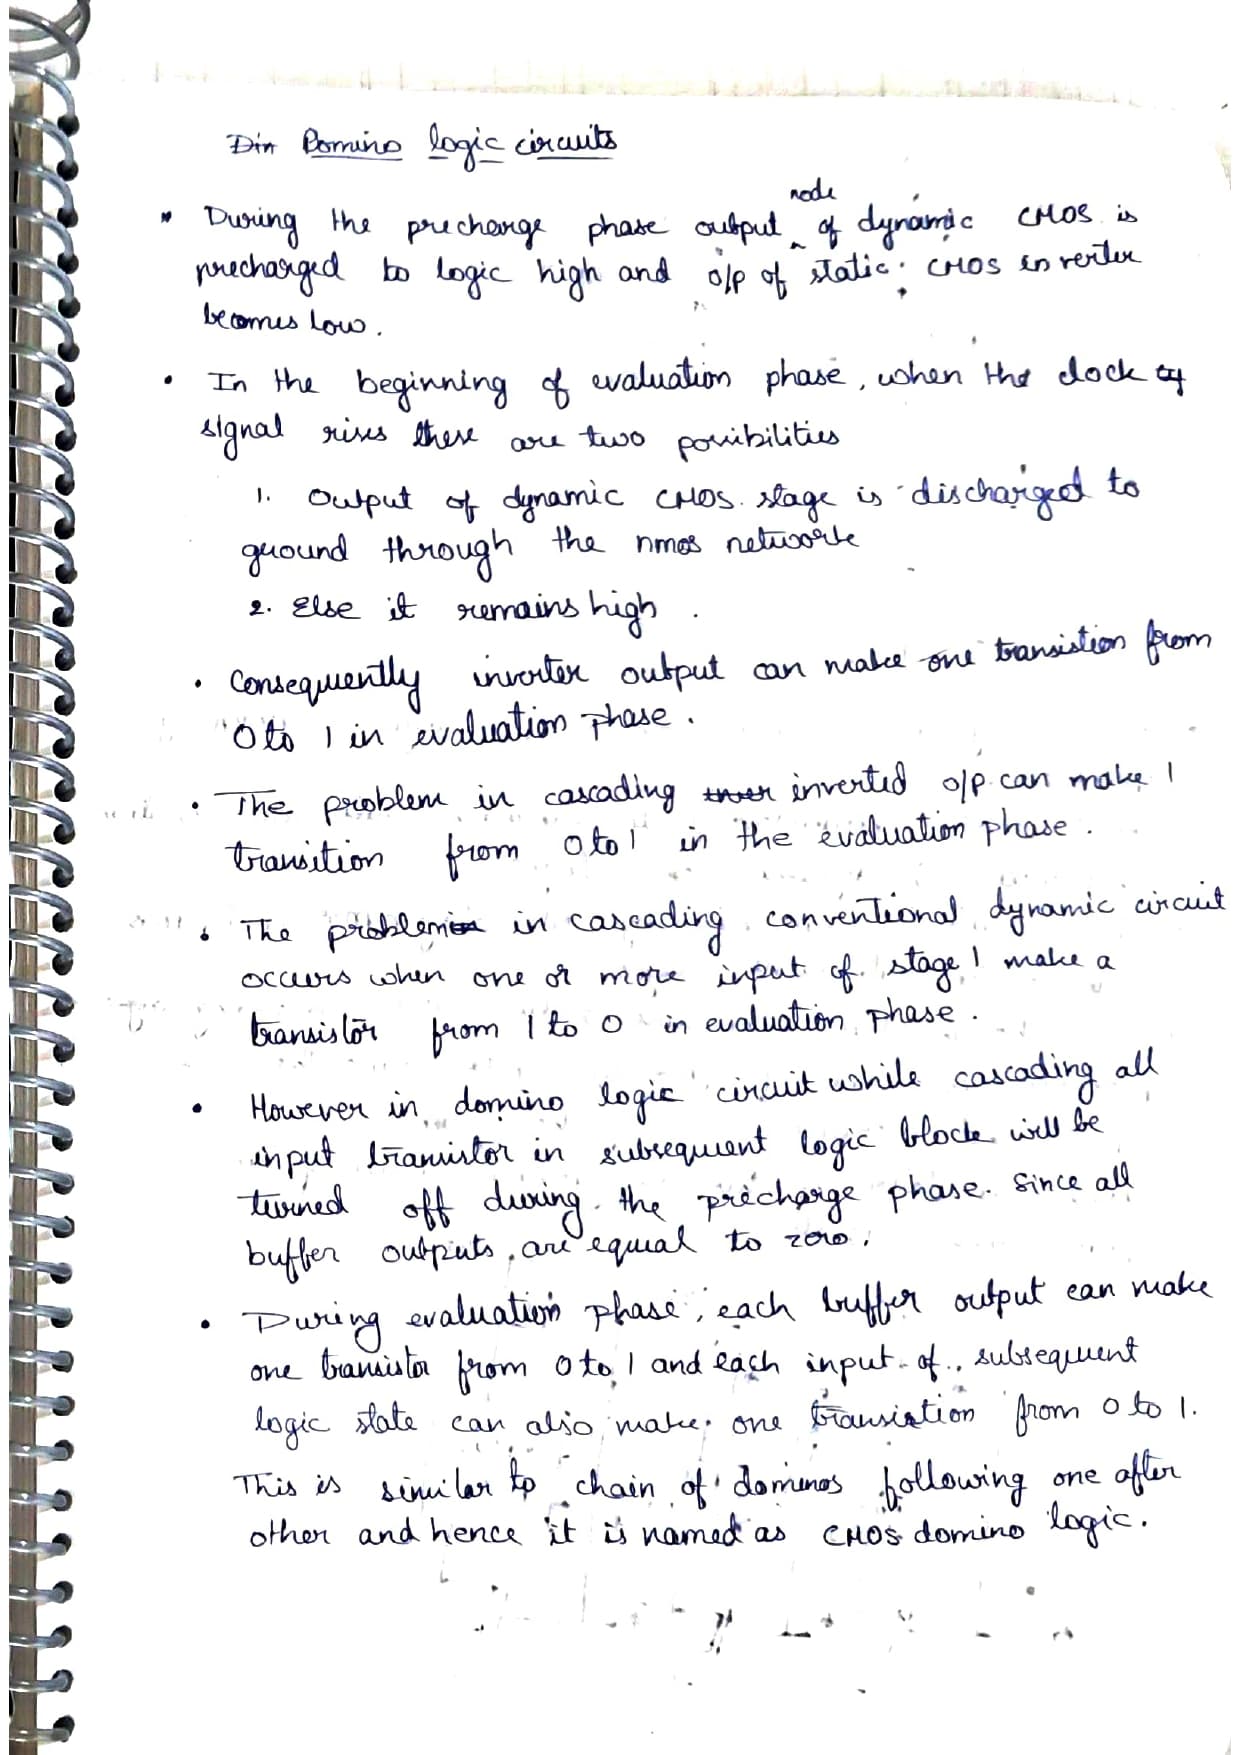 Din Domino logic circuits
• During the precharge phase output node of dynamic CMOS is
precharged to logic high and o/p of static CMOS inverter
becomes low.
• In the beginning of evaluation phase, when the clock
signal rises there are two possibilities
1. Output of dynamic CMOS stage is discharged to
ground through the nmos network
2. Else it remains high.
• Consequently inverter output can make one transistion from
0 to 1 in evaluation phase.
• The problem in cascading inverted o/p can make 1
transition from 0 to 1 in the evaluation phase.
• The problem in cascading conventional dynamic circuit
occurs when one or more input of stage 1 make a
transistor from 1 to 0 in evaluation phase.
• However in domino logic circuit while cascading all
input transistor in subsequent logic block will be
turned off during the precharge phase. Since all
buffer outputs are equal to zero.
• During evaluation phase, each buffer output can make
one transistor from 0 to 1 and each input of subsequent
logic state can also make one transistion from 0 to 1.
This is similar to chain of dominos following one after
other and hence it is named as CMOS domino logic.